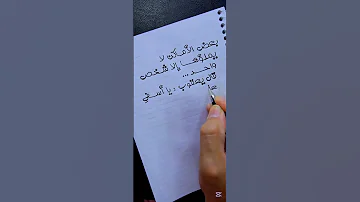 بعض الأماكن لا
يملؤها إلا شخص
واحد ...
قال يعقوب : يا أسفي
عل